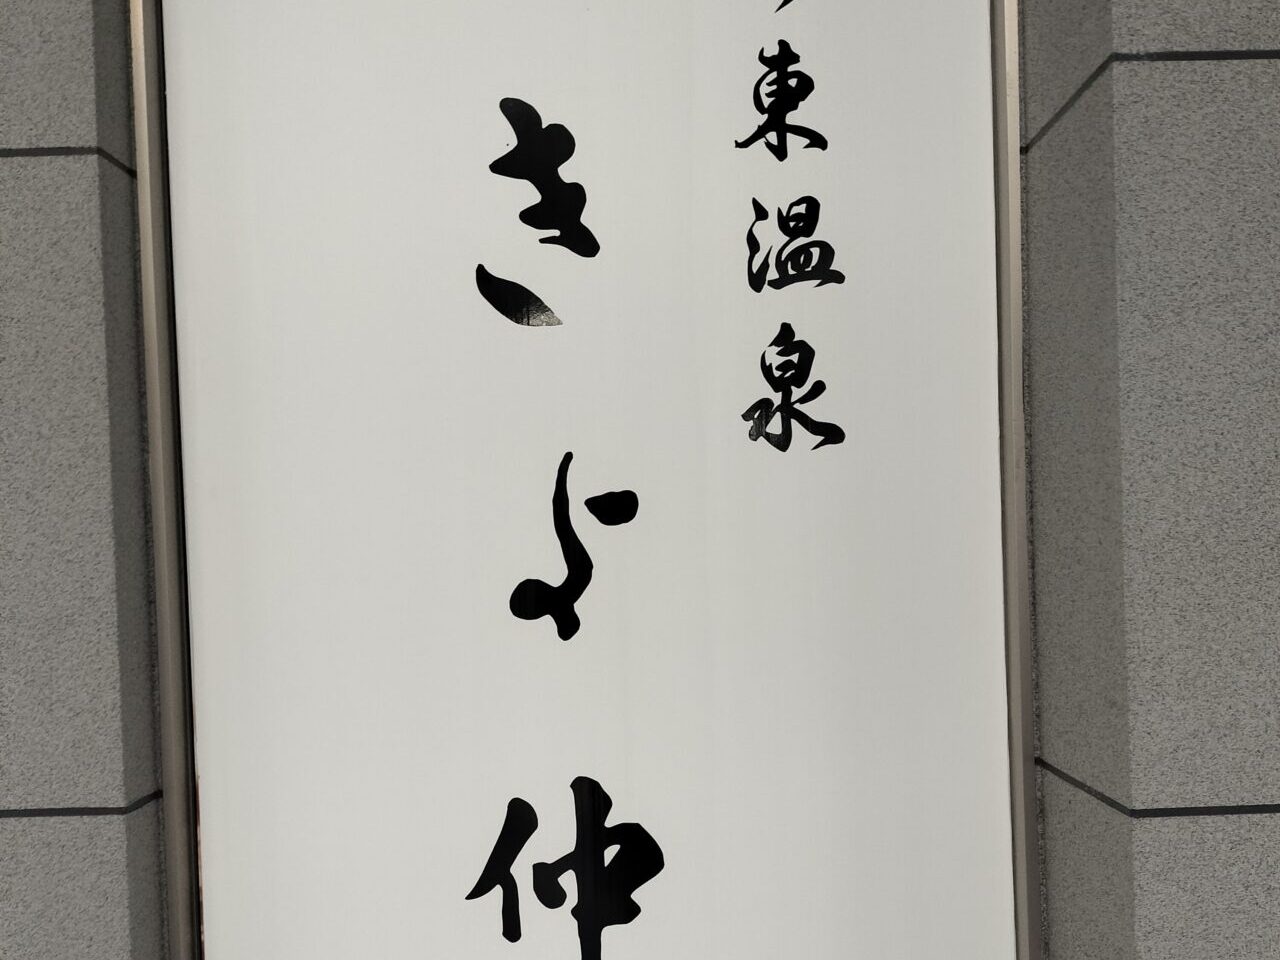 東温泉
きよ仲